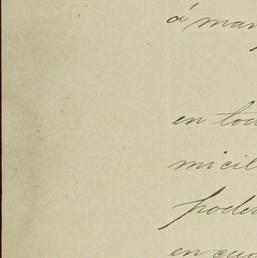 á man
en tod
micil
poder
en cua